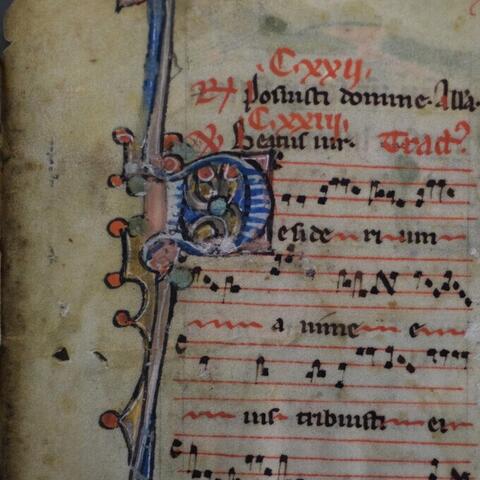 C.xxij.
R Posuisti domine. Alla.
C.xxiij.
V Beatus uir. Tract9.
Desiderium
anime e
ius tribuisti ei